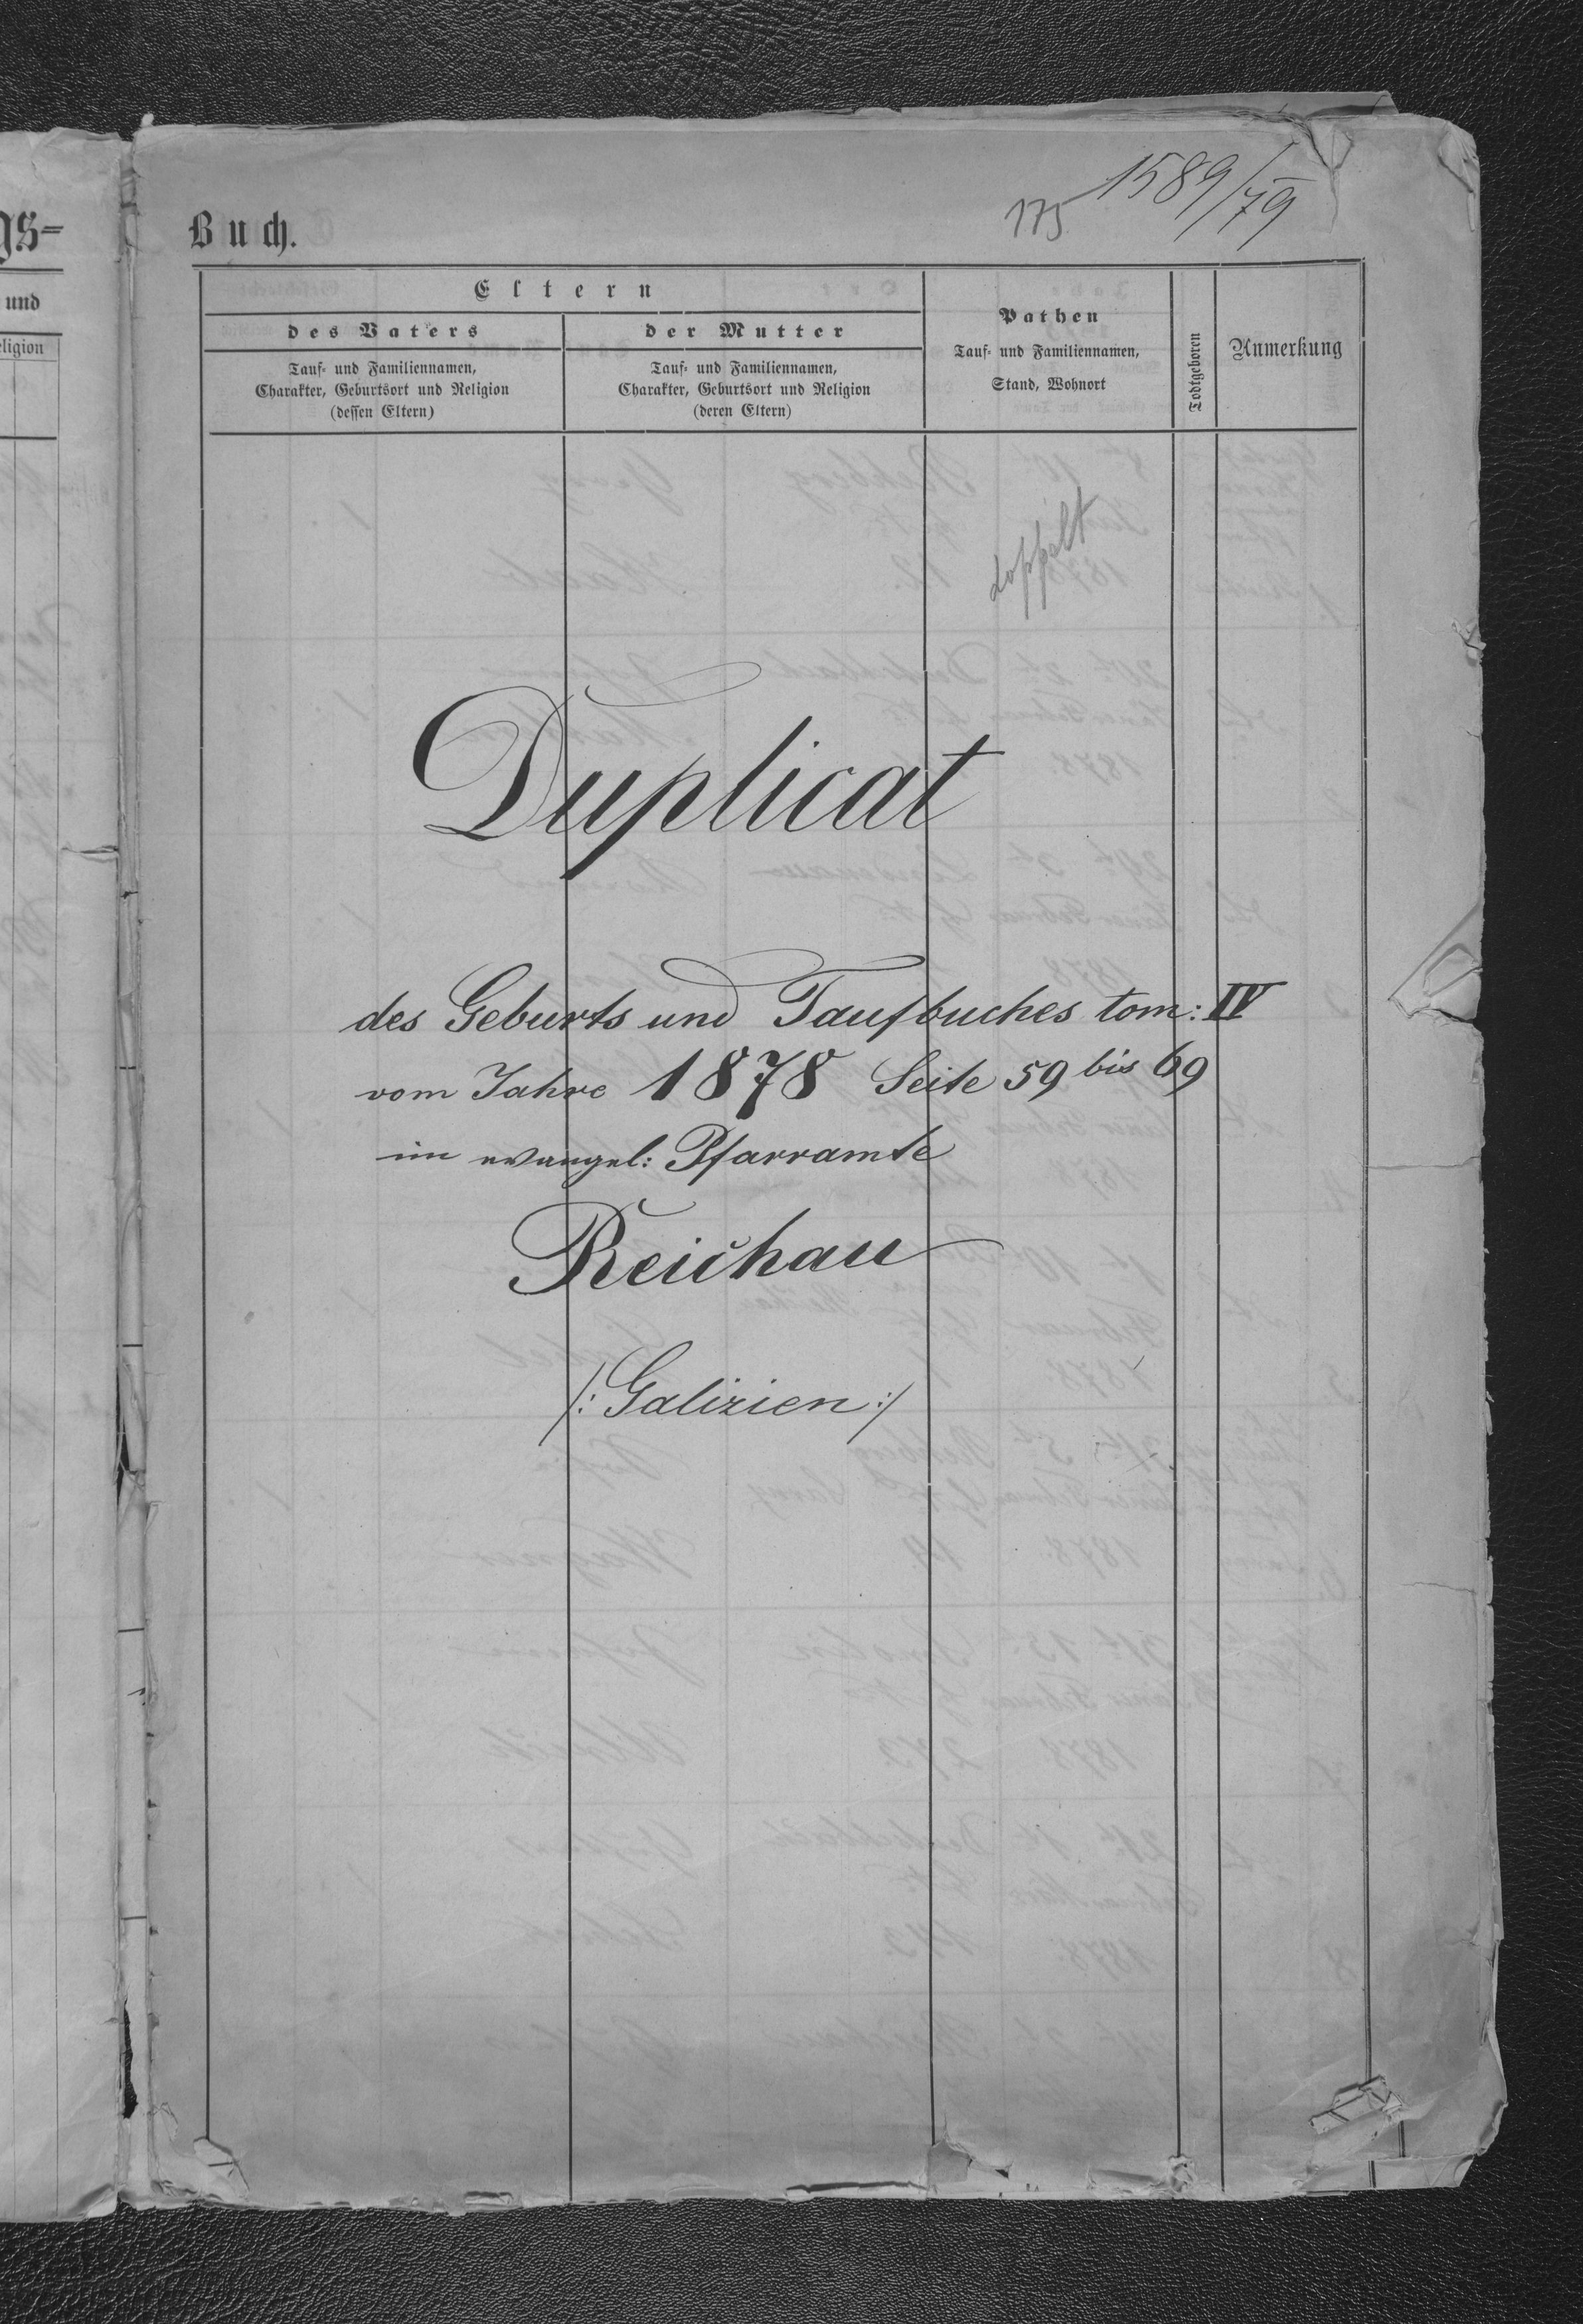 gs=
und
eligion
1589/79
175
Buch.
Eltern
des Vaters
der Mutter
Pathen
Todtgeboren
Anmerkung
Tauf- und Familiennamen,
Charakter, Geburtsort und Religion
(dessen Eltern)
Tauf- und Familiennamen,
Charakter, Geburtsort und Religion
(deren Eltern)
Tauf- und Familiennamen,
Stand, Wohnort
doppelt
Duplicat
des Geburts und Taufbuches tom: IV
vom Jahre 1878 Seite 59 bis 69
im evangel: Pfarramte
Reichau
/: Galizien :/